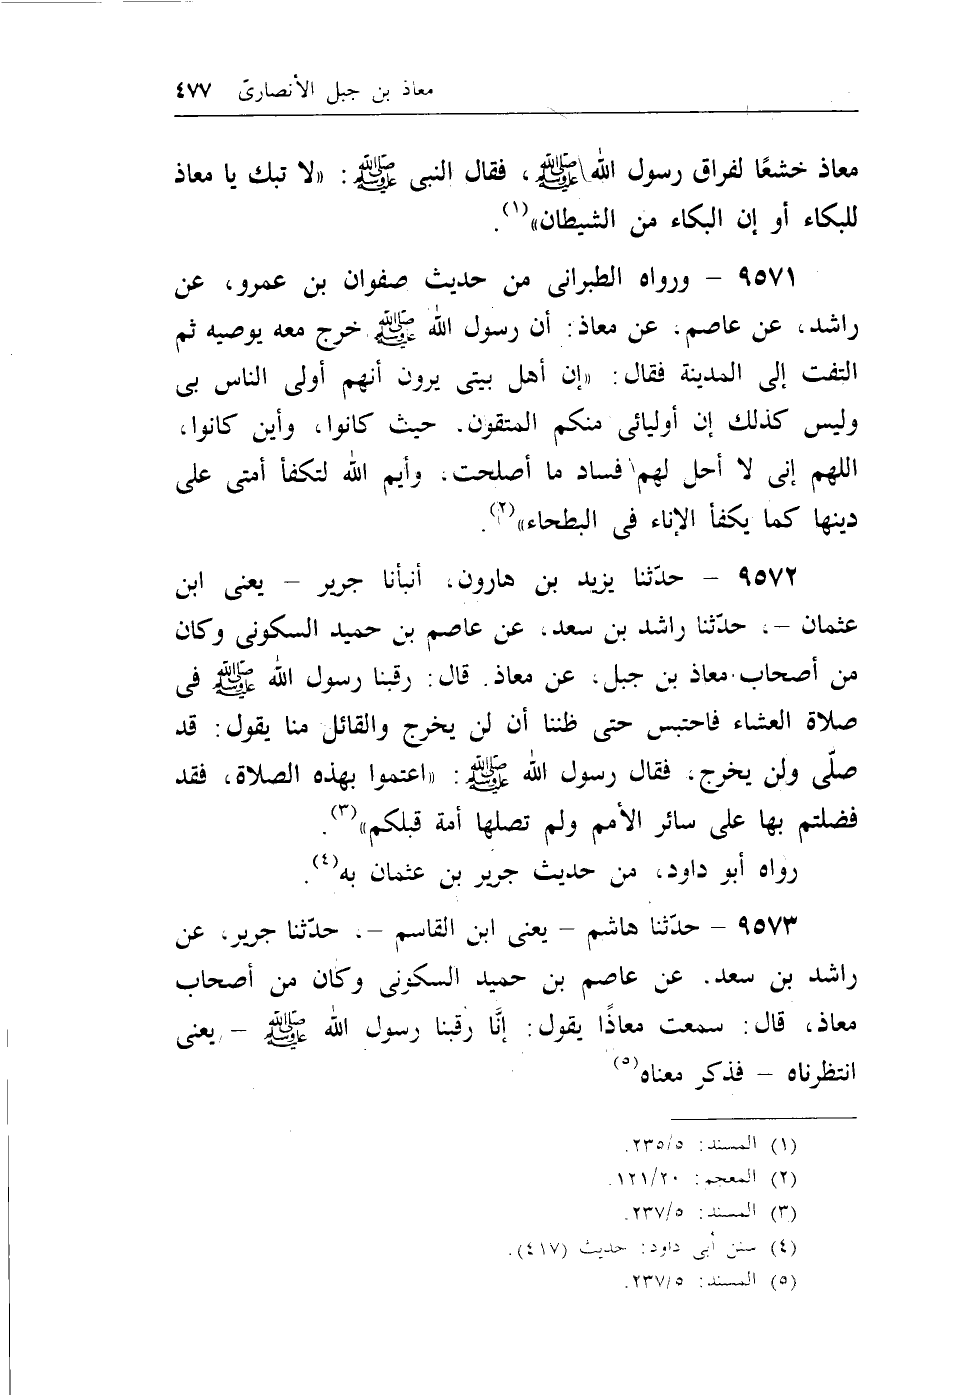 معاذ بن جبل الأنصارىّ ٤٧٧
معاذ خشعًا لفراق رسول الله ﷺ، فقال النبى ﷺ: «لا تبك يا معاذ
للبكاء أو إن البكاء من الشيطان»(١).
٩٥٧١ – ورواه الطبرانى من حديث صفوان بن عمرو، عن
راشد، عن عاصم، عن معاذ: أن رسول الله ﷺ خرج معه يوصيه ثم
التفت إلى المدينة فقال: «إن أهل بيتى يرون أنهم أولى الناس بى
وليس كذلك إن أوليائى منكم المتقون. حيث كانوا، وأين كانوا،
اللهم إنى لا أحل لهم فساد ما أصلحت، وأيم الله لتكفأ أمتى على
دينها كما يكفأ الإناء فى البطحاء»(٢).
٩٥٧٢ – حدّثنا يزيد بن هارون، أنبأنا جرير – يعنى ابن
عثمان –، حدّثنا راشد بن سعد، عن عاصم بن حميد السكونى وكان
من أصحاب معاذ بن جبل، عن معاذ. قال: رقبنا رسول الله ﷺ فى
صلاة العشاء فاحتبس حتى ظننا أن لن يخرج والقائل منا يقول: قد
صلّى ولن يخرج، فقال رسول الله ﷺ: «اعتموا بهذه الصلاة، فقد
فضلتم بها على سائر الأمم ولم تصلها أمة قبلكم»(٣).
رواه أبو داود، من حديث جرير بن عثمان به(٤).
٩٥٧٣ – حدّثنا هاشم – يعنى ابن القاسم –، حدّثنا جرير، عن
راشد بن سعد. عن عاصم بن حميد السكونى وكان من أصحاب
معاذ، قال: سمعت معاذًا يقول: إنَّا رقبنا رسول الله ﷺ – يعنى
انتظرناه – فذكر معناه(٥)
(١) المسند: ٢٣٥/٥.
(٢) المعجم: ١٢١/٢٠.
(٣) المسند: ٢٣٧/٥.
(٤) سنن أبى داود: حديث (٤١٧).
(٥) المسند: ٢٣٧/٥.